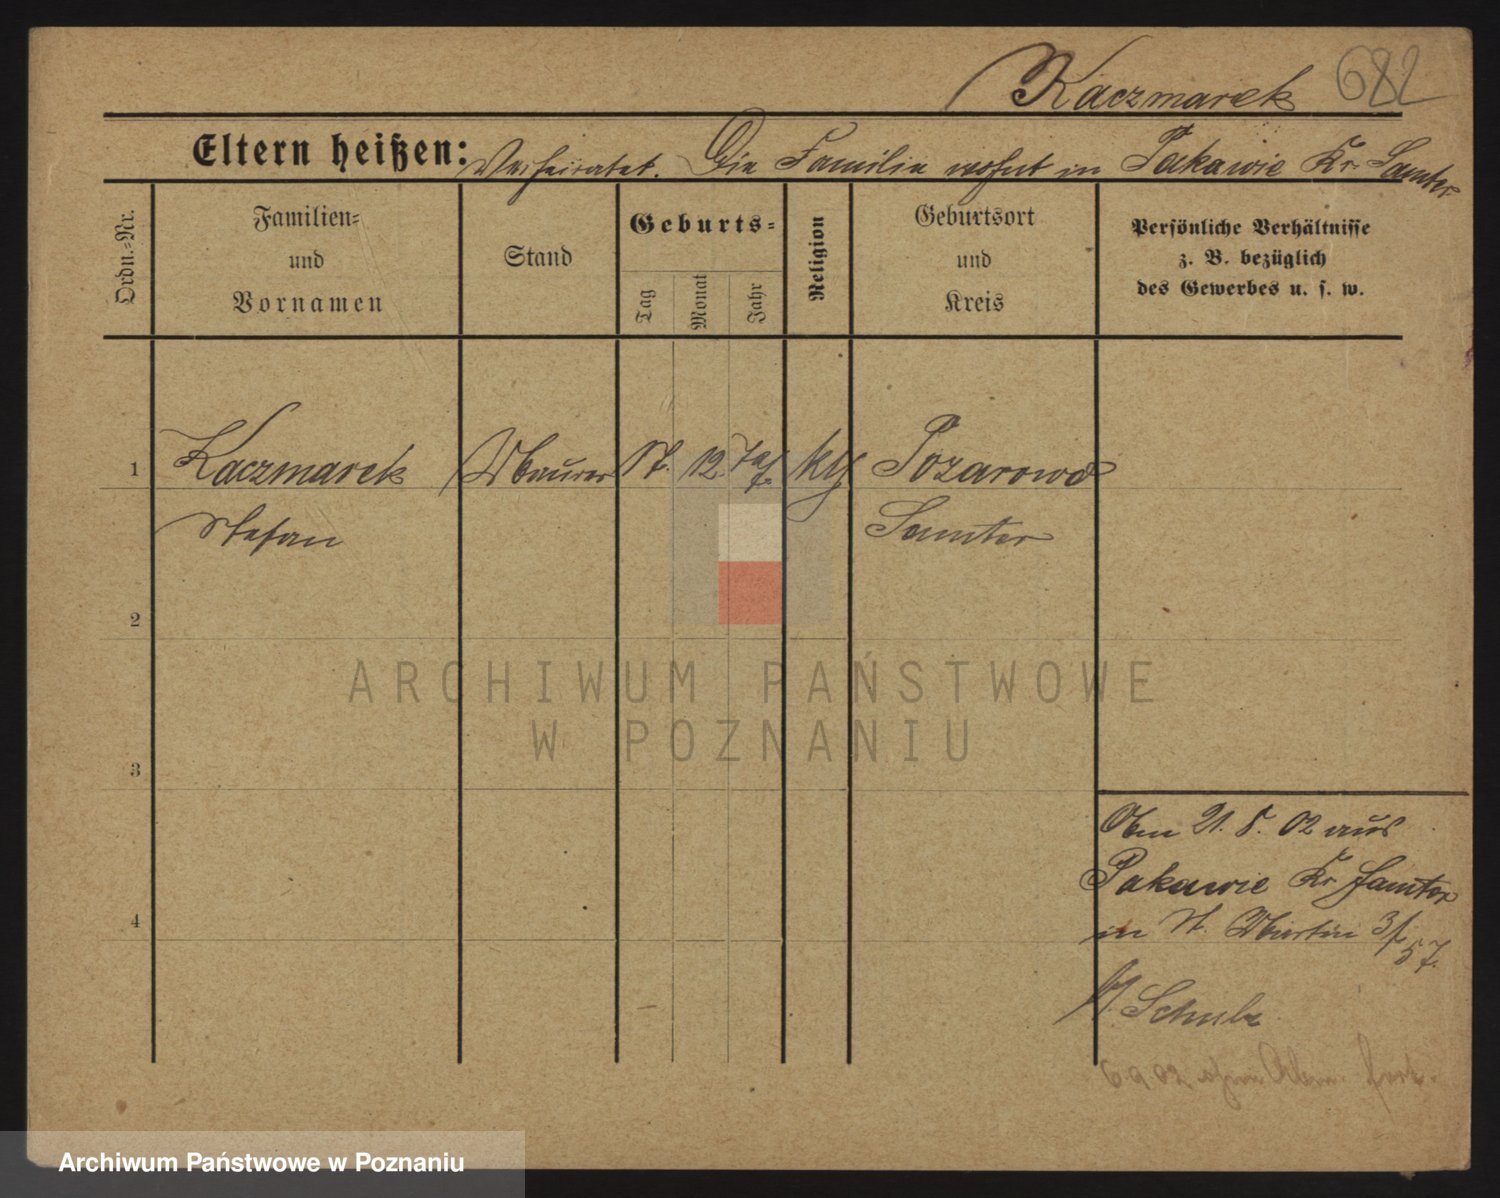 Kaczmarek 682
Eltern heißen: Verheiratet. Die Familie wohnt in Pakawie Kr. Samter
Ordn.=Nr.
Familien=
und
Vornamen
Stand
Geburts=
Tag
Monat
Jahr
Religion
Geburtsort
und
Kreis
Persönliche Verhältnisse
z. B. bezüglich
des Gewerbes u. s. w.
1 Kaczmarek Maurer 12. kth Pozarowo
Stefan Samter
2
3
4
Am 21. 5. 02 aus
Pakawie Kr Samter
in St. Martin 3/
57.
Schulz
6.9.02 ohne Abm. fort.
ARCHIWUM PAŃSTWOWE
W POZNANIU
Archiwum Państwowe w Poznaniu